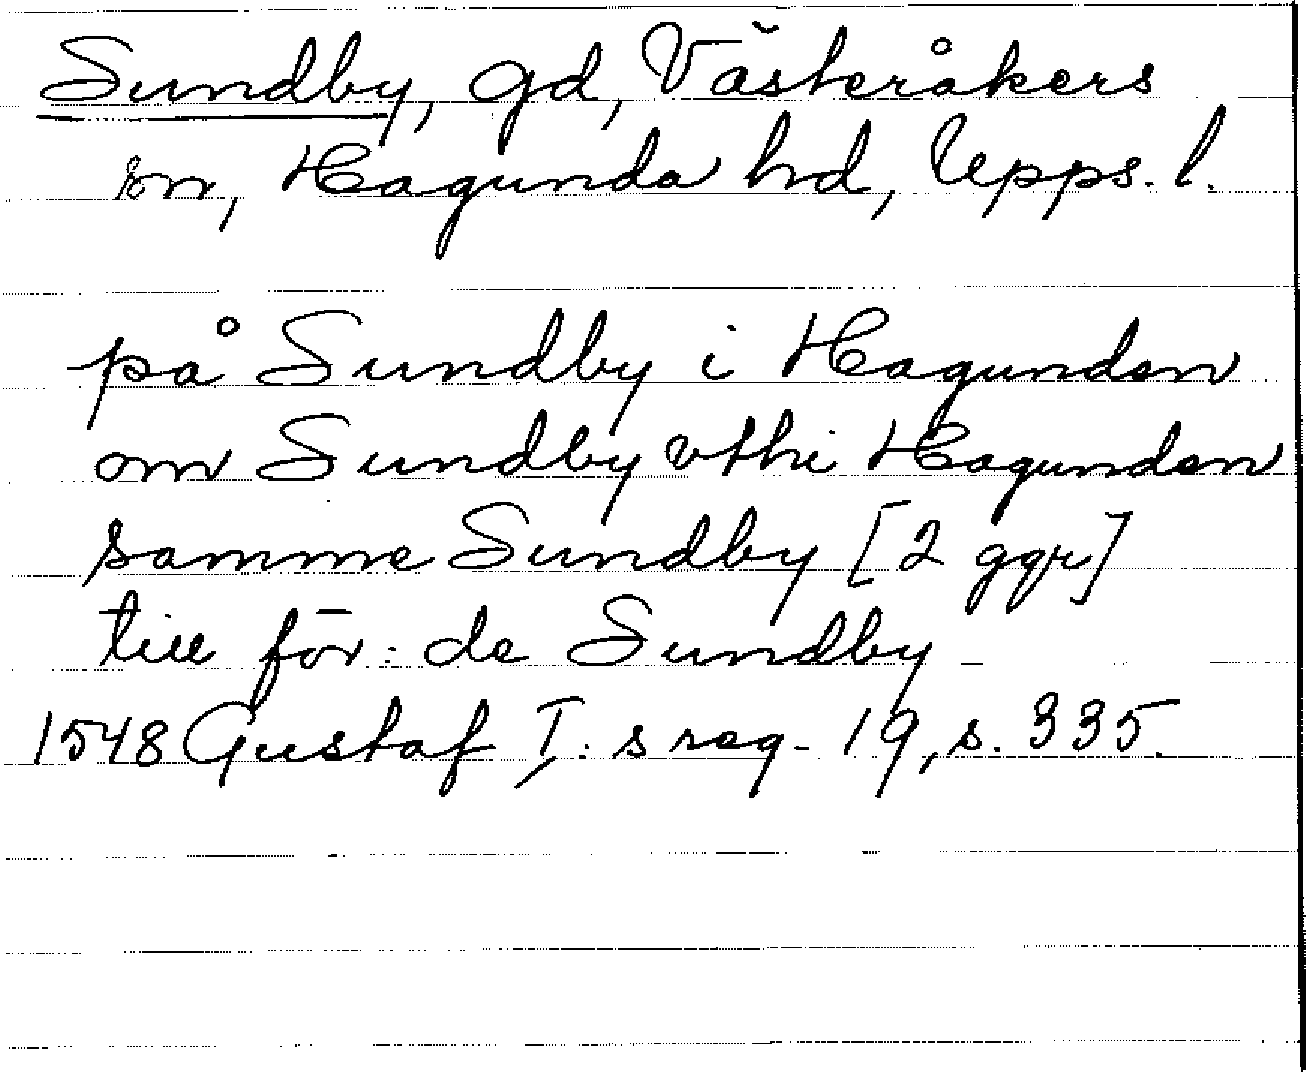 Sundby, gd, Västeråkers
sn, Hagunda hd, Upps. l.
på Sundby i Hagunden
om Sundby vthi Hagunden
samme Sundby [2 ggr]
till för: de Sundby
1548 Gustaf I: s reg. 19, s. 335.